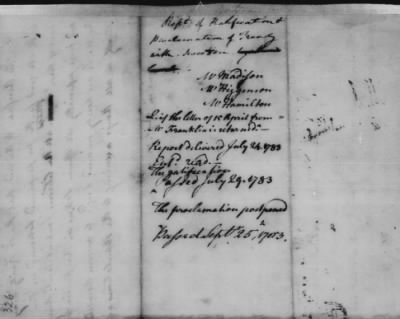 Rept. of Ratification &
Proclamation of Treaty
with Sweden
Mr Madison
Mr Higginson
Mr Hamilton
the letter of 15 April from
Mr Franklin is returned:
Report delivered July 24. 1783
read.
The ratification
passed July 29. 1783
The proclamation postponed
Passed Sept. 25, 1783.